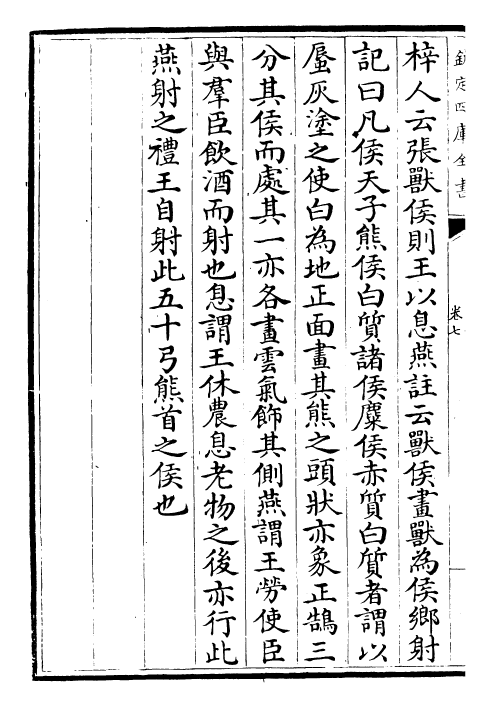 欽定四庫全書
卷七
梓人云張獸侯則王以息燕註云獸侯畫獸為侯鄉射
記曰凡侯天子熊侯白質諸侯麋侯赤質白質者謂以
蜃灰塗之使白為地正面畫其熊之頭狀亦象正鵠三
分其侯而處其一亦各畫雲氣飾其側燕謂王勞使臣
與羣臣飲酒而射也息謂王休農息老物之後亦行此
燕射之禮王自射此五十弓熊首之侯也